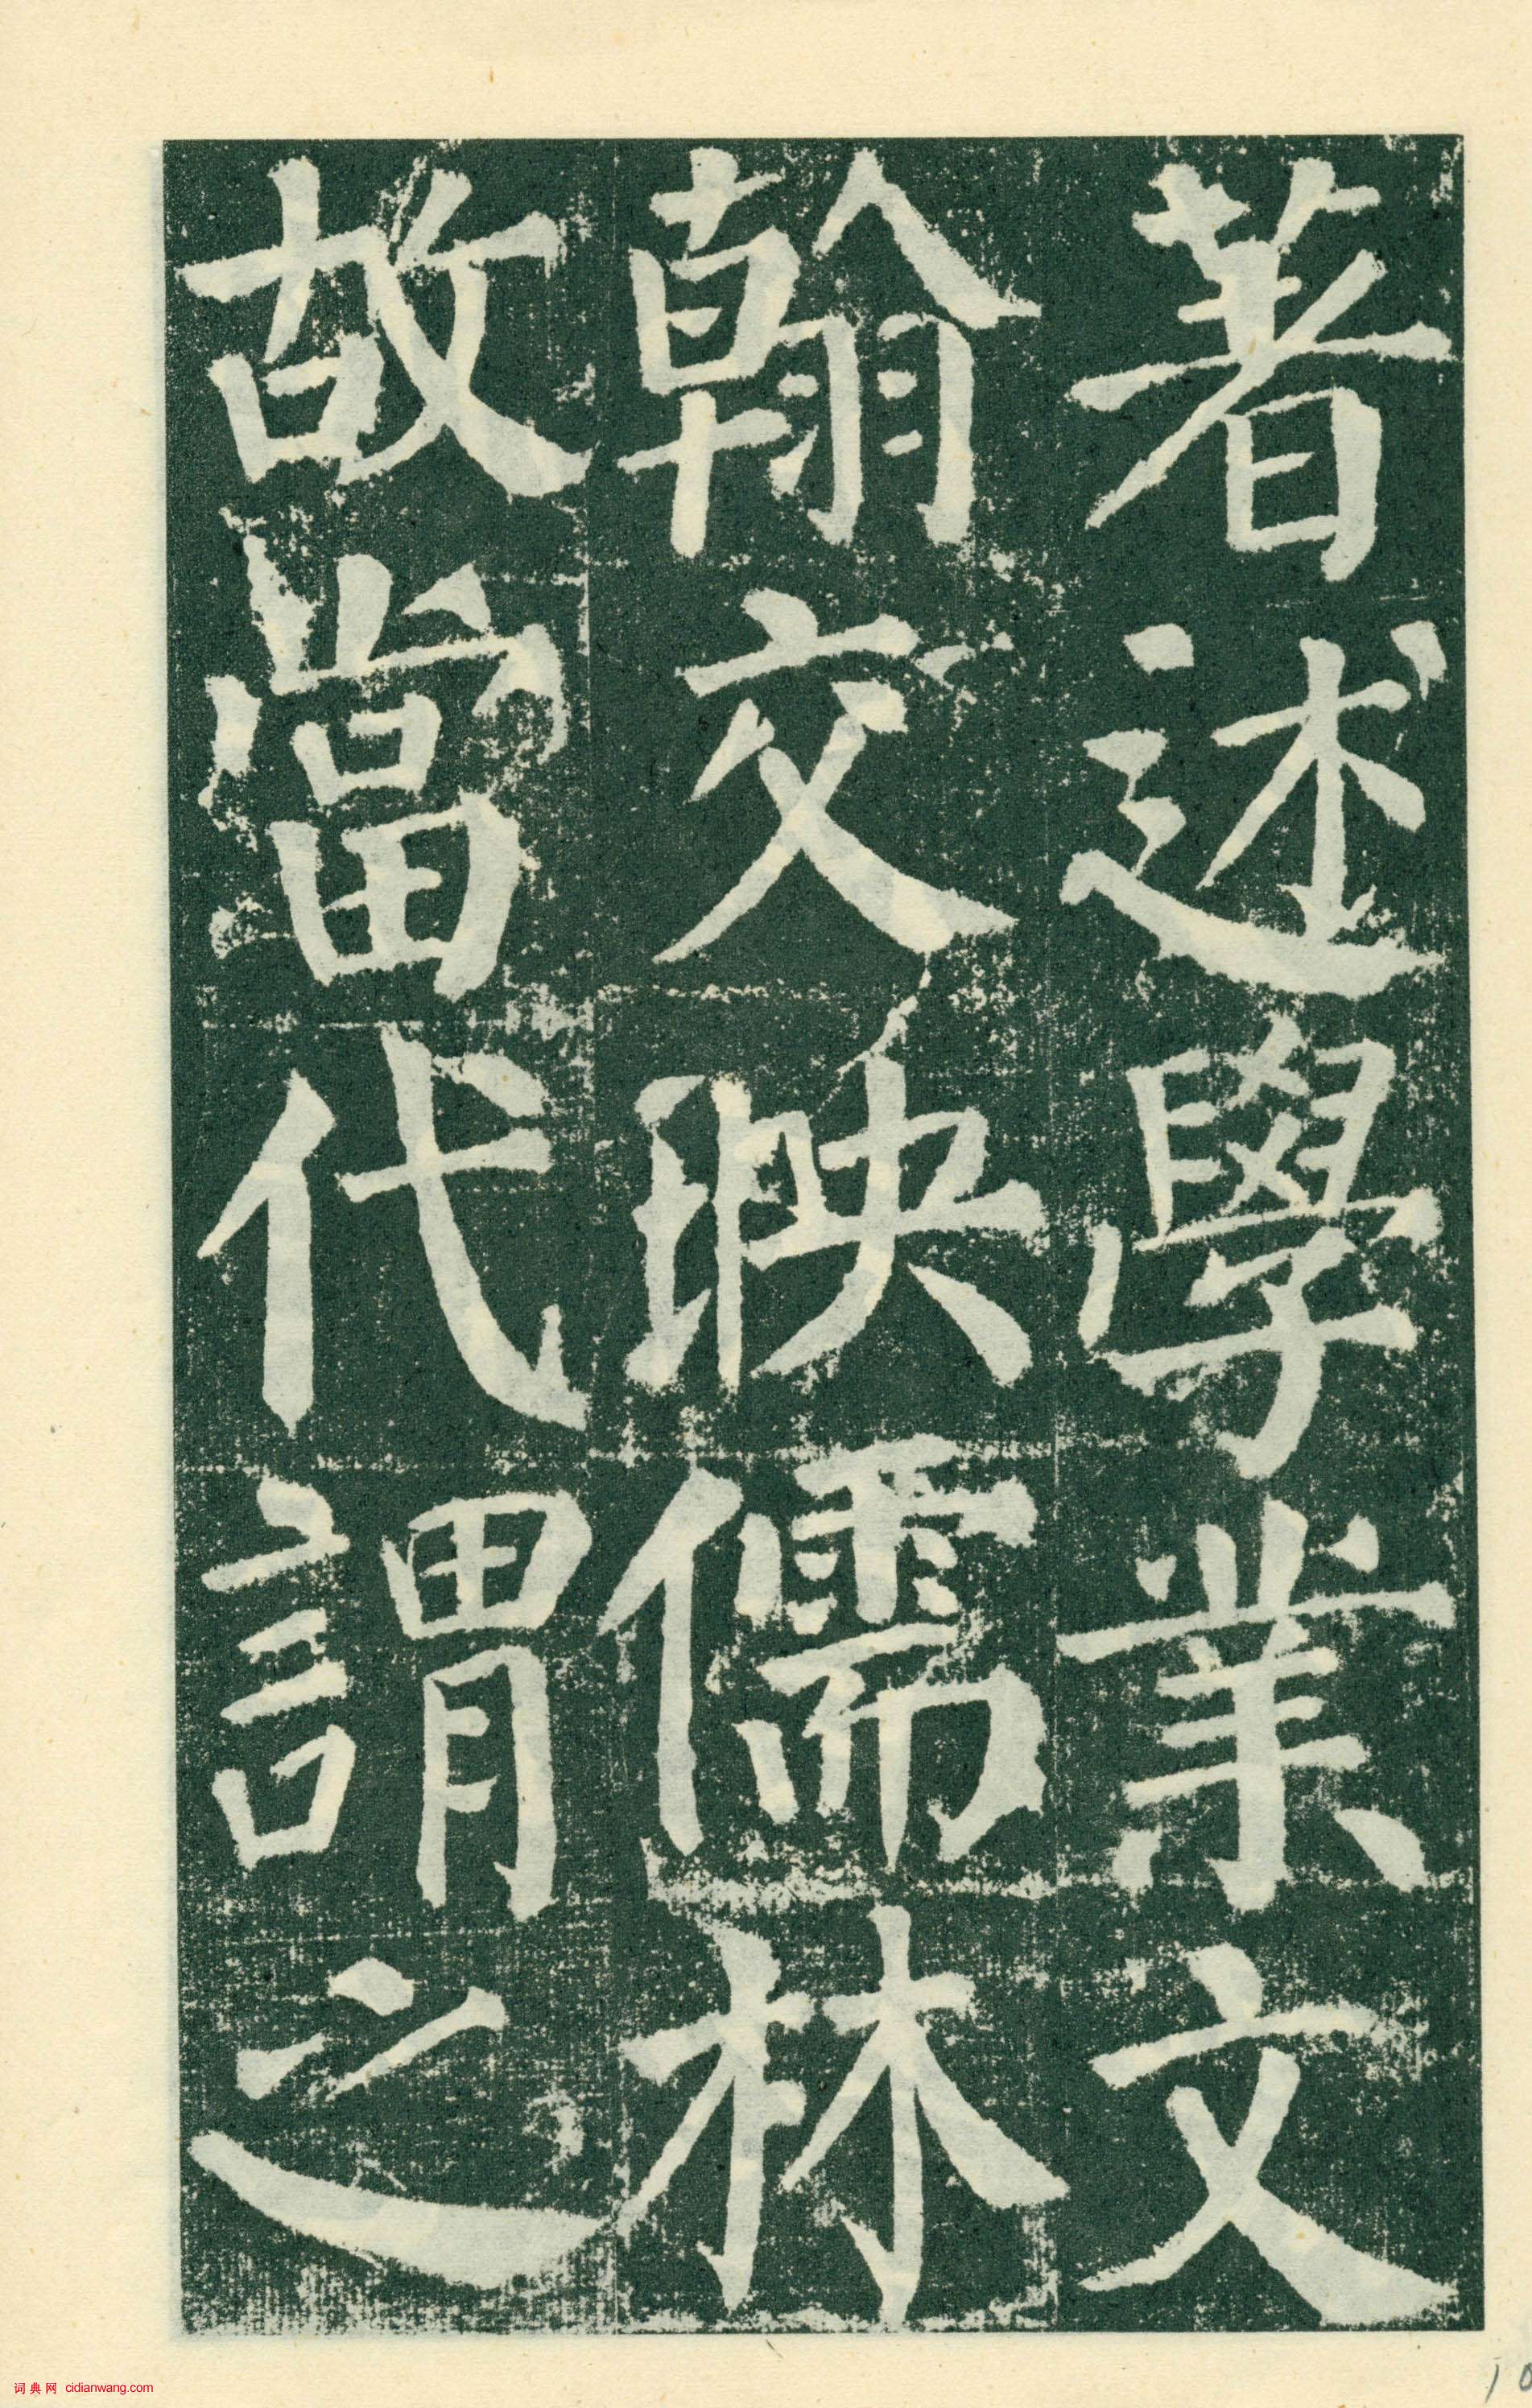 著述學業文
翰交映儒林
故當代謂之
词典网 cidianwang.com
10